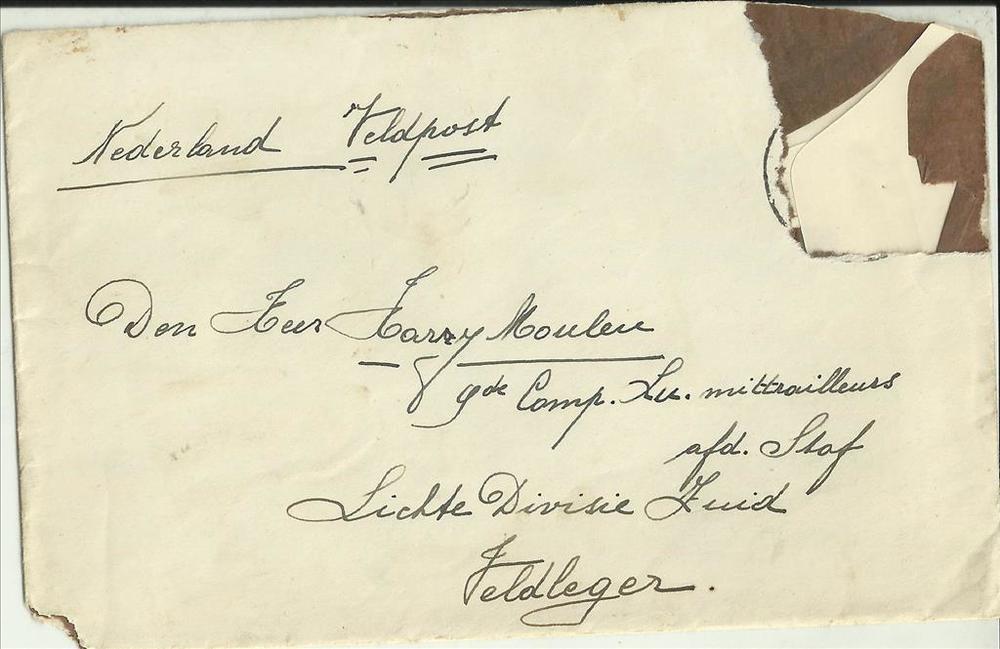 Nederland Veldpost
Den Heer Harry Moulen
9de Comp. Lu. mittrailleurs
afd. Staf
Lichte Divisie Zuid
Veldleger.